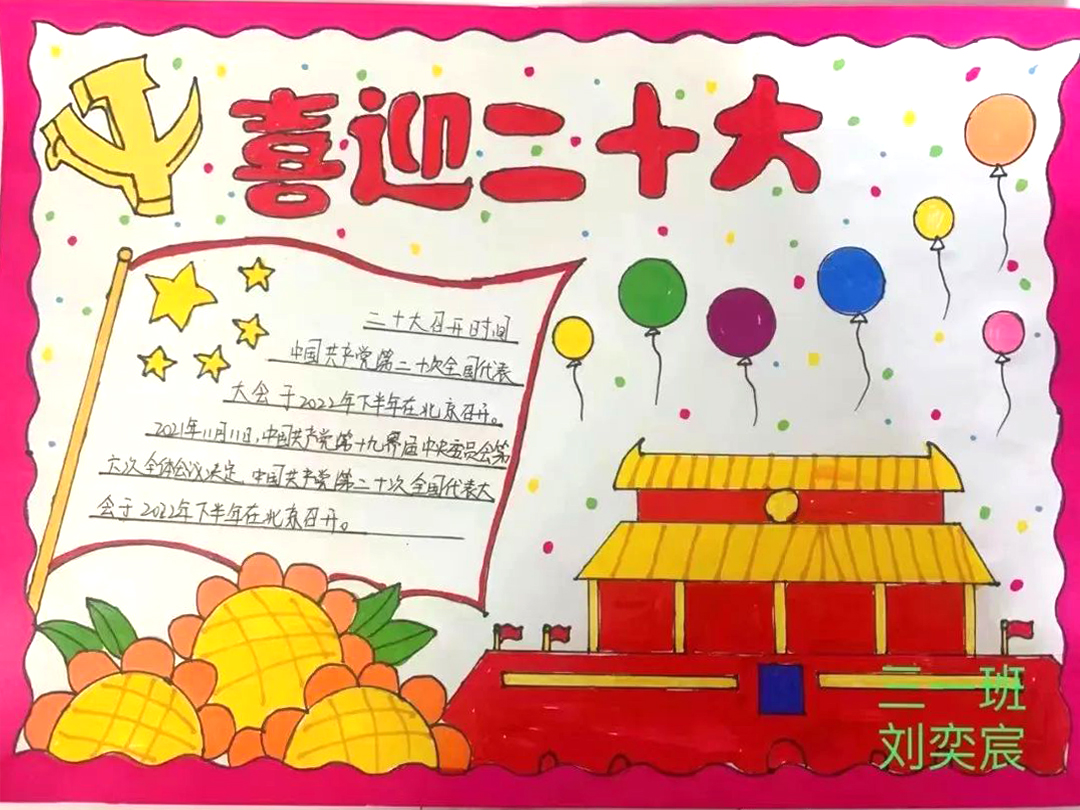 喜迎二十大
二十大召开时间
中国共产党第二十次全国代表
大会于2022年下半年在北京召开。
2021年11月11日,中国共产党第十九界届中央委员会第
六次全体会议决定,中国共产党第二十次全国代表大
会于2022年下半年在北京召开。
二一班
刘奕宸